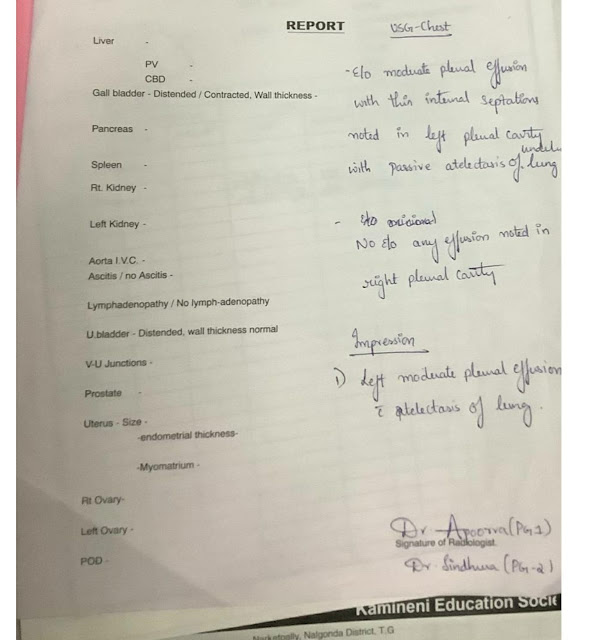 REPORT
USG-Chest
Liver -
PV -
CBD -
Gall bladder - Distended / Contracted, Wall thickness -
Pancreas -
Spleen -
Rt. Kidney -
Left Kidney -
Aorta I.V.C. -
Ascitis / no Ascitis -
Lymphadenopathy / No lymph-adenopathy
U.bladder - Distended, wall thickness normal
V-U Junctions -
Prostate -
Uterus - Size -
-endometrial thickness-
-Myomatrium -
Rt Ovary-
Left Ovary -
POD -
- E/o moderate pleural effusion
with thin internal septations
noted in left pleural cavity
with passive atelectasis of lung
- E/o
No E/o any effusion noted in
right pleural cavity
Impression
1) Left moderate pleural effusion
c̄ atelectasis of lung.
Dr. Apoorva (PG1)
Signature of Radiologist
Dr. Sindhura (PG-2)
Kamineni Education Socie
Nalgonda District, T.G